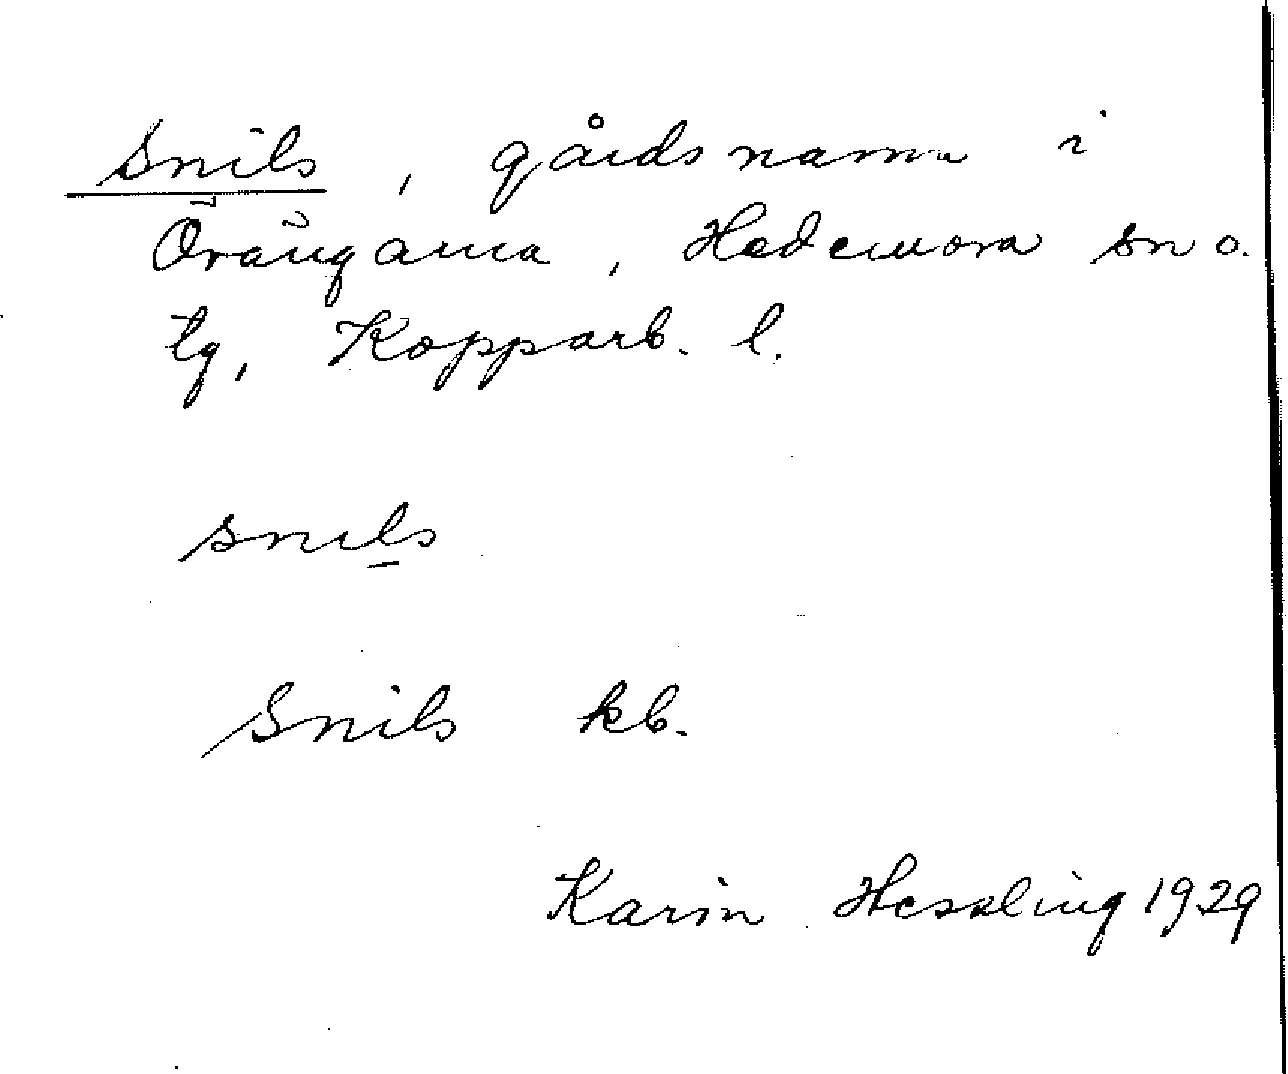 Snils, gårdsnamn i
Örängarna, Hedemora sn o.
tg, Kopparb. l.
snils
Snils kb.
Karin Hessling 1929